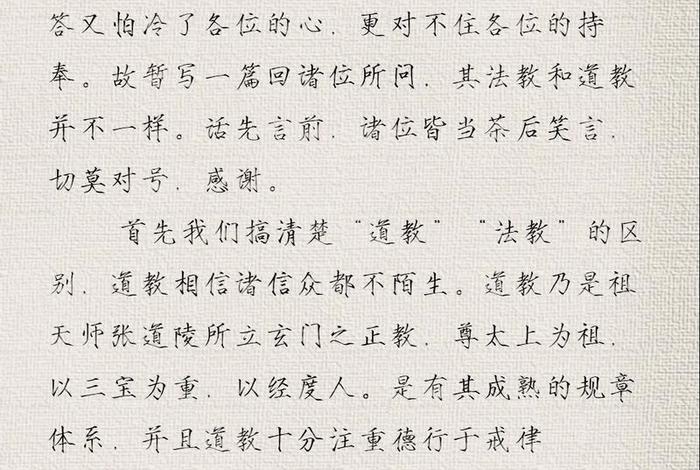 答又怕冷了各位的心，更对不住各位的持
奉。故暂写一篇回诸位所问，其法教和道教
并不一样。话先言前，诸位皆当茶后笑言，
切莫对号，感谢。
首先我们搞清楚“道教”“法教”的区
别，道教相信诸信众都不陌生。道教乃是祖
天师张道陵所立玄门之正教，尊太上为祖，
以三宝为重，以经度人。是有其成熟的规章
体系，并且道教十分注重德行于戒律